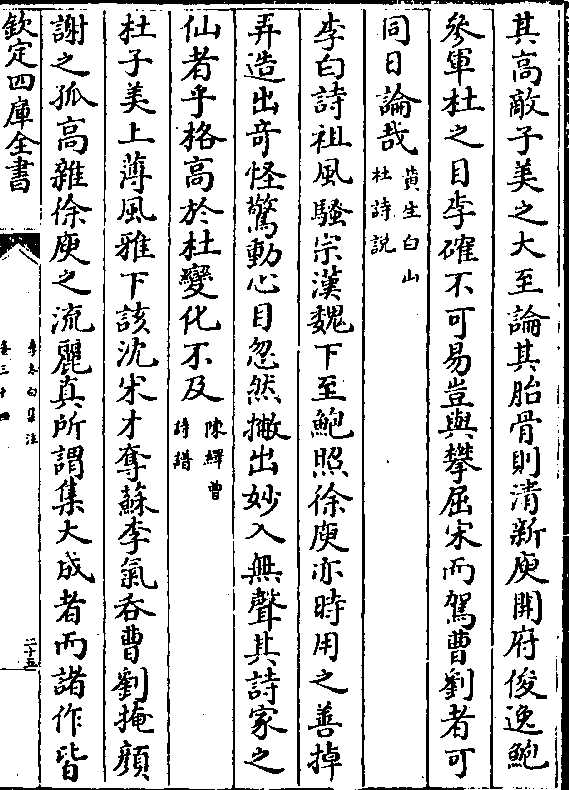 其高敵子美之大至論其胎骨則清新庾開府俊逸鮑
參軍杜之目李確不可易豈與攀屈宋而駕曹劉者可
同日論哉黃生白山
杜詩說
李白詩祖風騷宗漢魏下至鮑照徐庾亦時用之善掉
弄造出奇怪驚動心目忽然撇出妙入無聲其詩家之
仙者乎格高於杜變化不及陳繹曾
詩譜
杜子美上薄風雅下該沈宋才奪蘇李氣吞曹劉掩顔
謝之孤高雜徐庾之流麗真所謂集大成者而諸作皆
欽定四庫全書
李太白集注
卷三十四
二十五